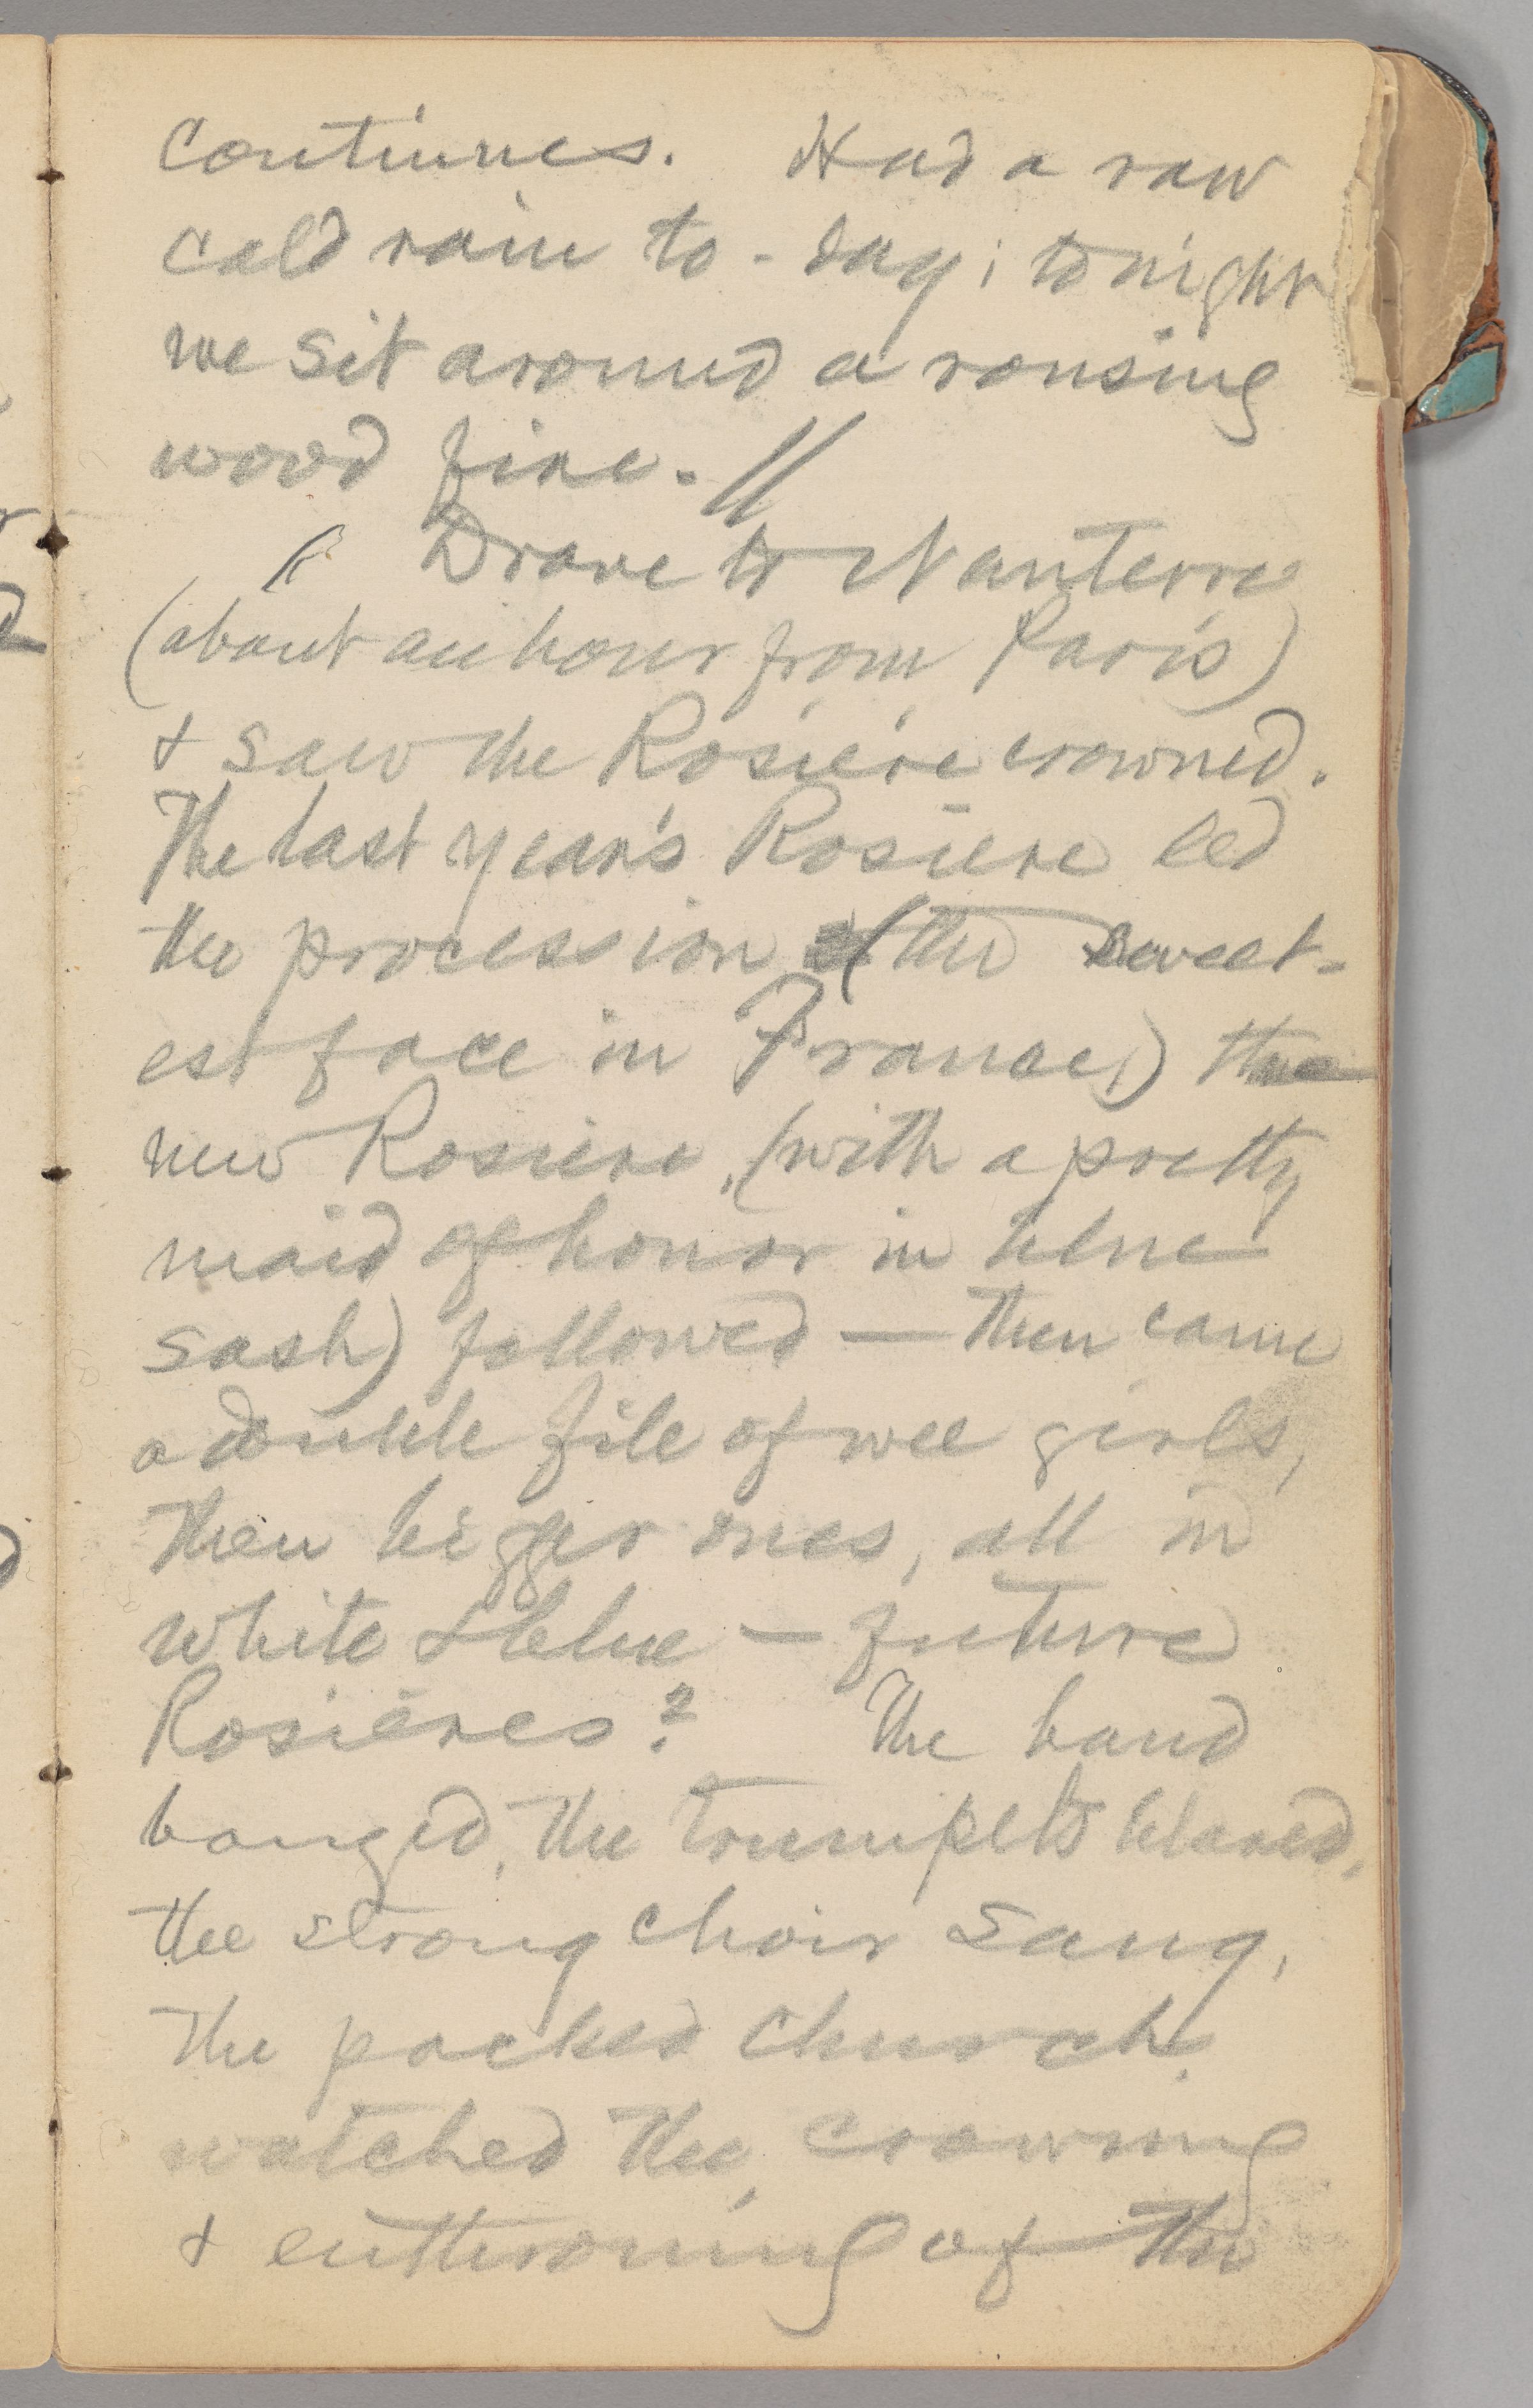 continues. Had a raw
cold rain to-day; tonight
we sit around a rousing
wood fire. //
Drove to Nanterre
(about an hour from Paris)
& saw the Rosière crowned.
The last year's Rosiere led
the procession (the sweet-
est face in France,) the
new Rosiere, (with a pretty
maid of honor in blue
sash) followed — then came
a double file of wee girls,
then bigger ones, all in
white & blue — future
Rosières? The band
banged, the trumpets blared,
the strong choir sang,
the packed church
watched the crowning
& enthroning of the